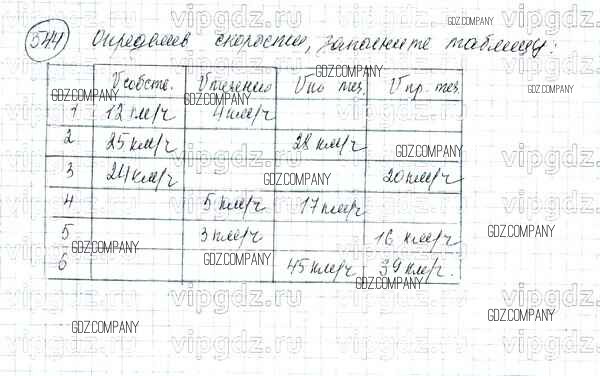 544 Определив скорости, заполните таблицу:
Vсобств. Vтечения Vпо теч. Vпр. теч.
1 12 км/ч 4 км/ч
2 25 км/ч 28 км/ч
3 24 км/ч 20 км/ч
4 5 км/ч 17 км/ч
5 3 км/ч 16 км/ч
6 45 км/ч 39 км/ч.